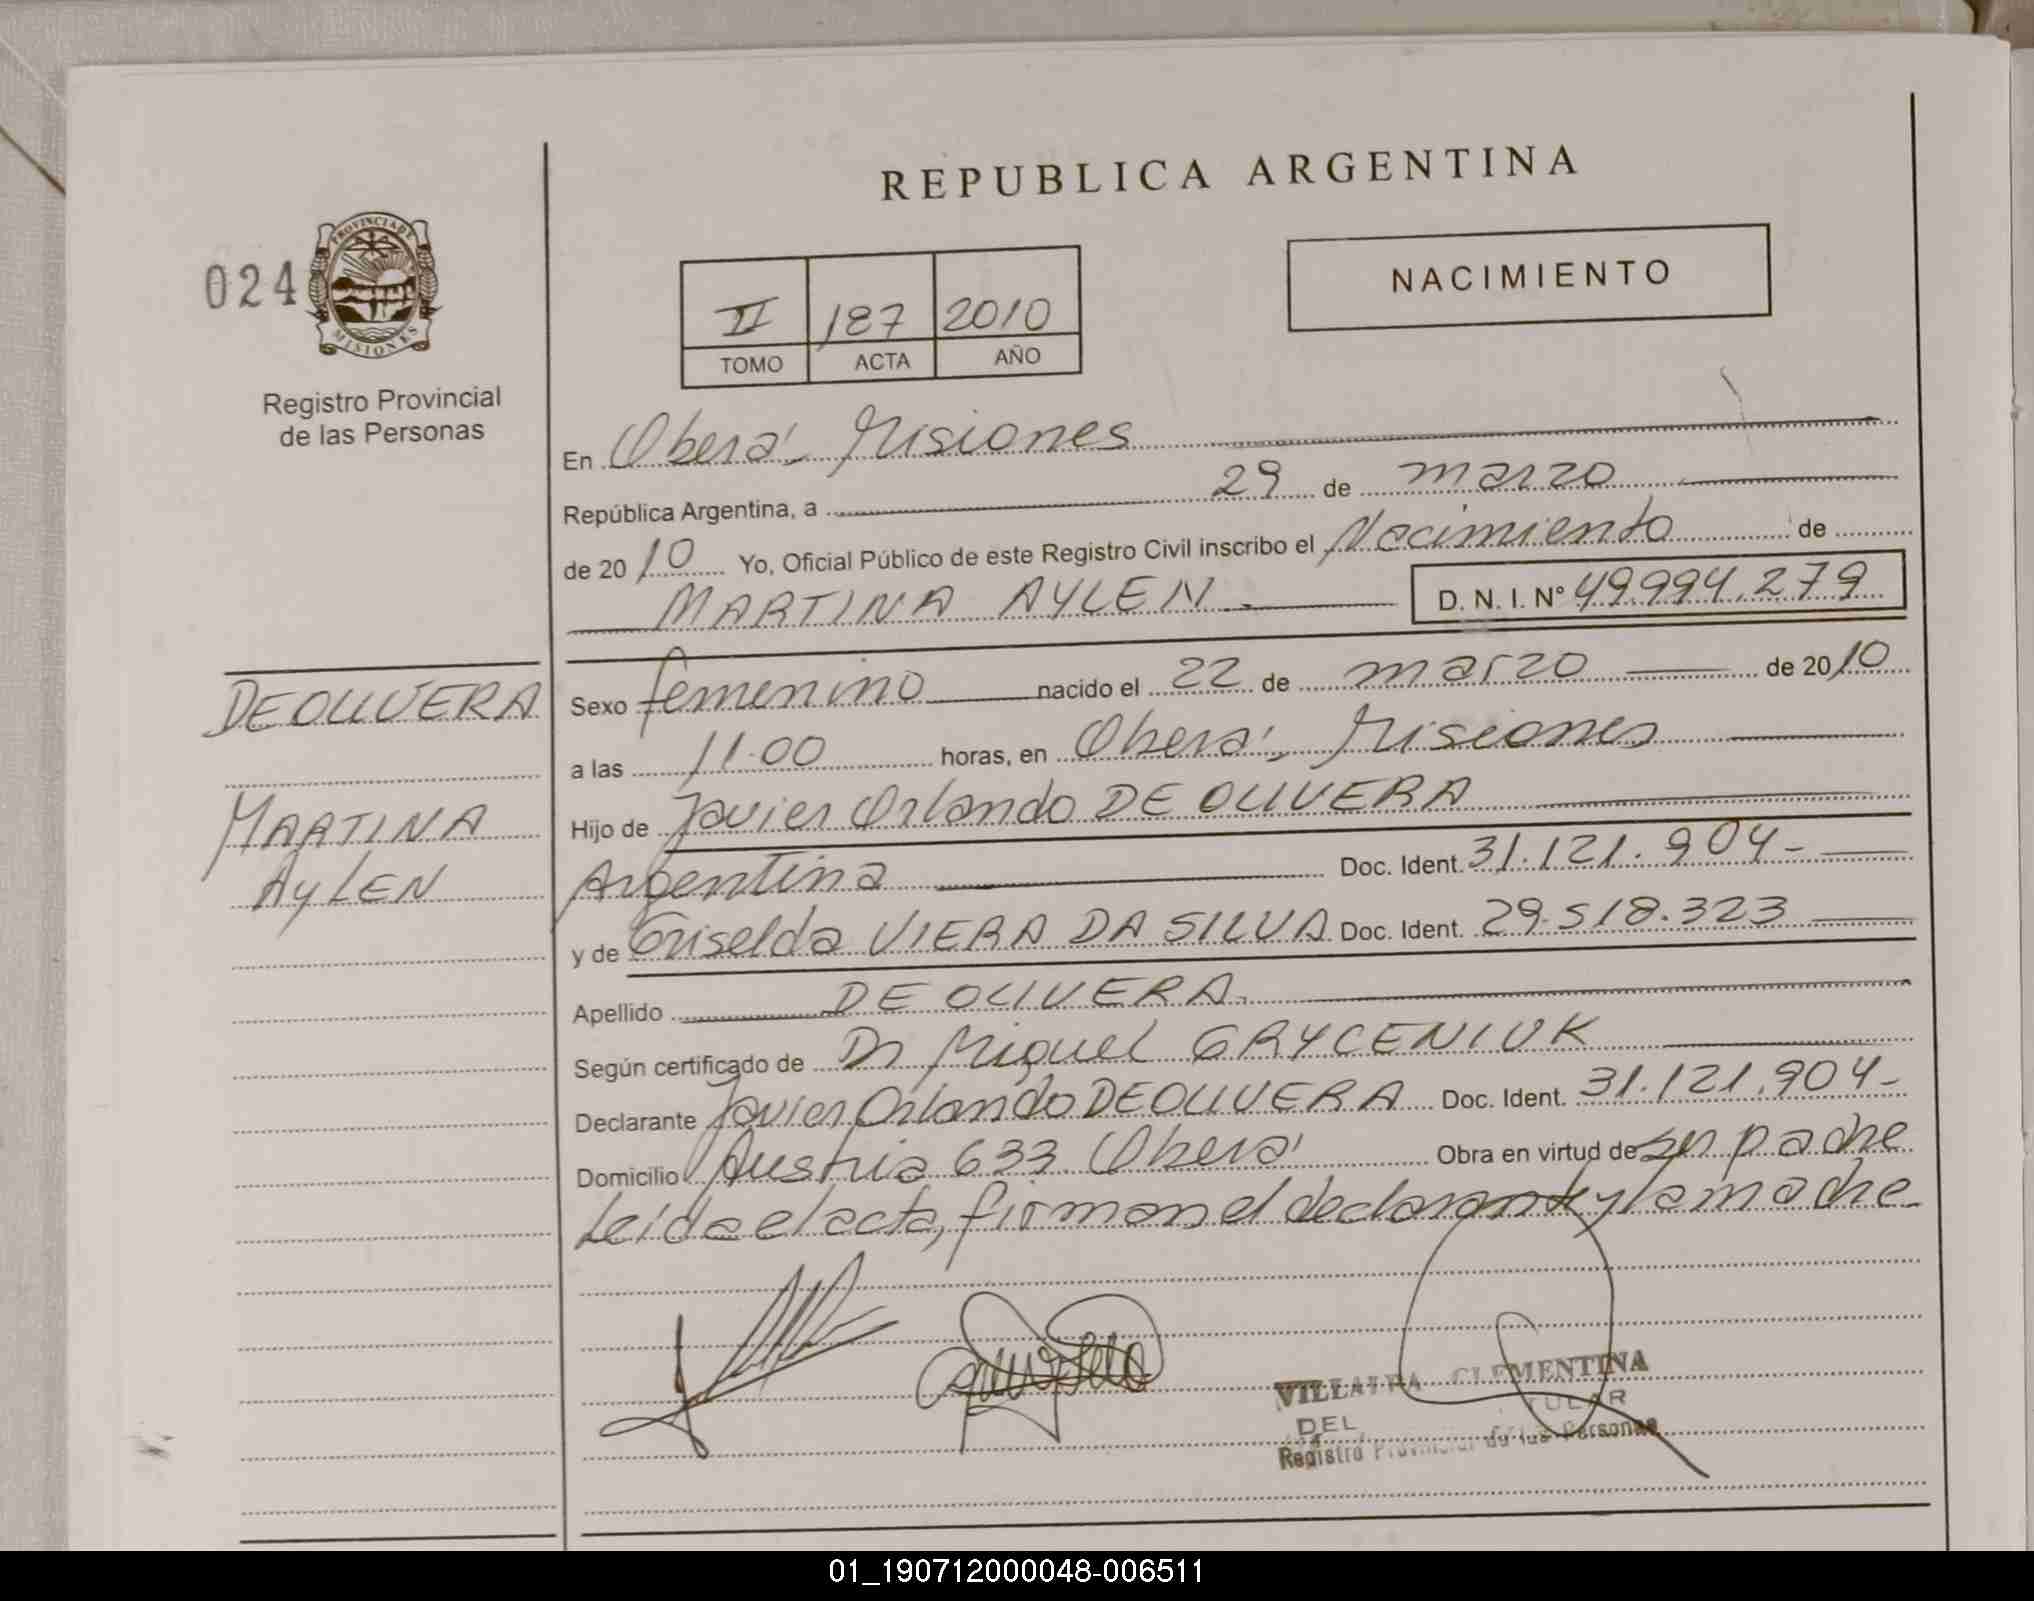 REPUBLICA ARGENTINA
024
PROVINCIA DE
MISIONES
Registro Provincial
de las Personas
NACIMIENTO
II 187 2010
TOMO ACTA AÑO
En Oberá, Misiones
República Argentina, a 29 de marzo
de 2010 Yo, Oficial Público de este Registro Civil inscribo el Nacimiento de
MARTINA AYLEN.
D. N. I. Nº 49.994.279
DE OLIVERA
MARTINA
AYLEN
Sexo femenino nacido el 22 de marzo de 2010
a las 11.00 horas, en Oberá, Misiones
Hijo de Javier Orlando DE OLIVERA
Argentina Doc. Ident. 31.121.904-
y de Griselda VIERA DA SILVA Doc. Ident. 29.518.323
Apellido DE OLIVERA.
Según certificado de Dr Miguel GRYCENIUK
Declarante Javier Orlando DE OLIVERA Doc. Ident. 31.121.904-
Domicilio Austria 633 Oberá Obra en virtud de ser padre
Leída el acta, firman el declarante y la madre-
CLEMENTINA
DEL
Registro Provincial de las Personas
01_190712000048-006511